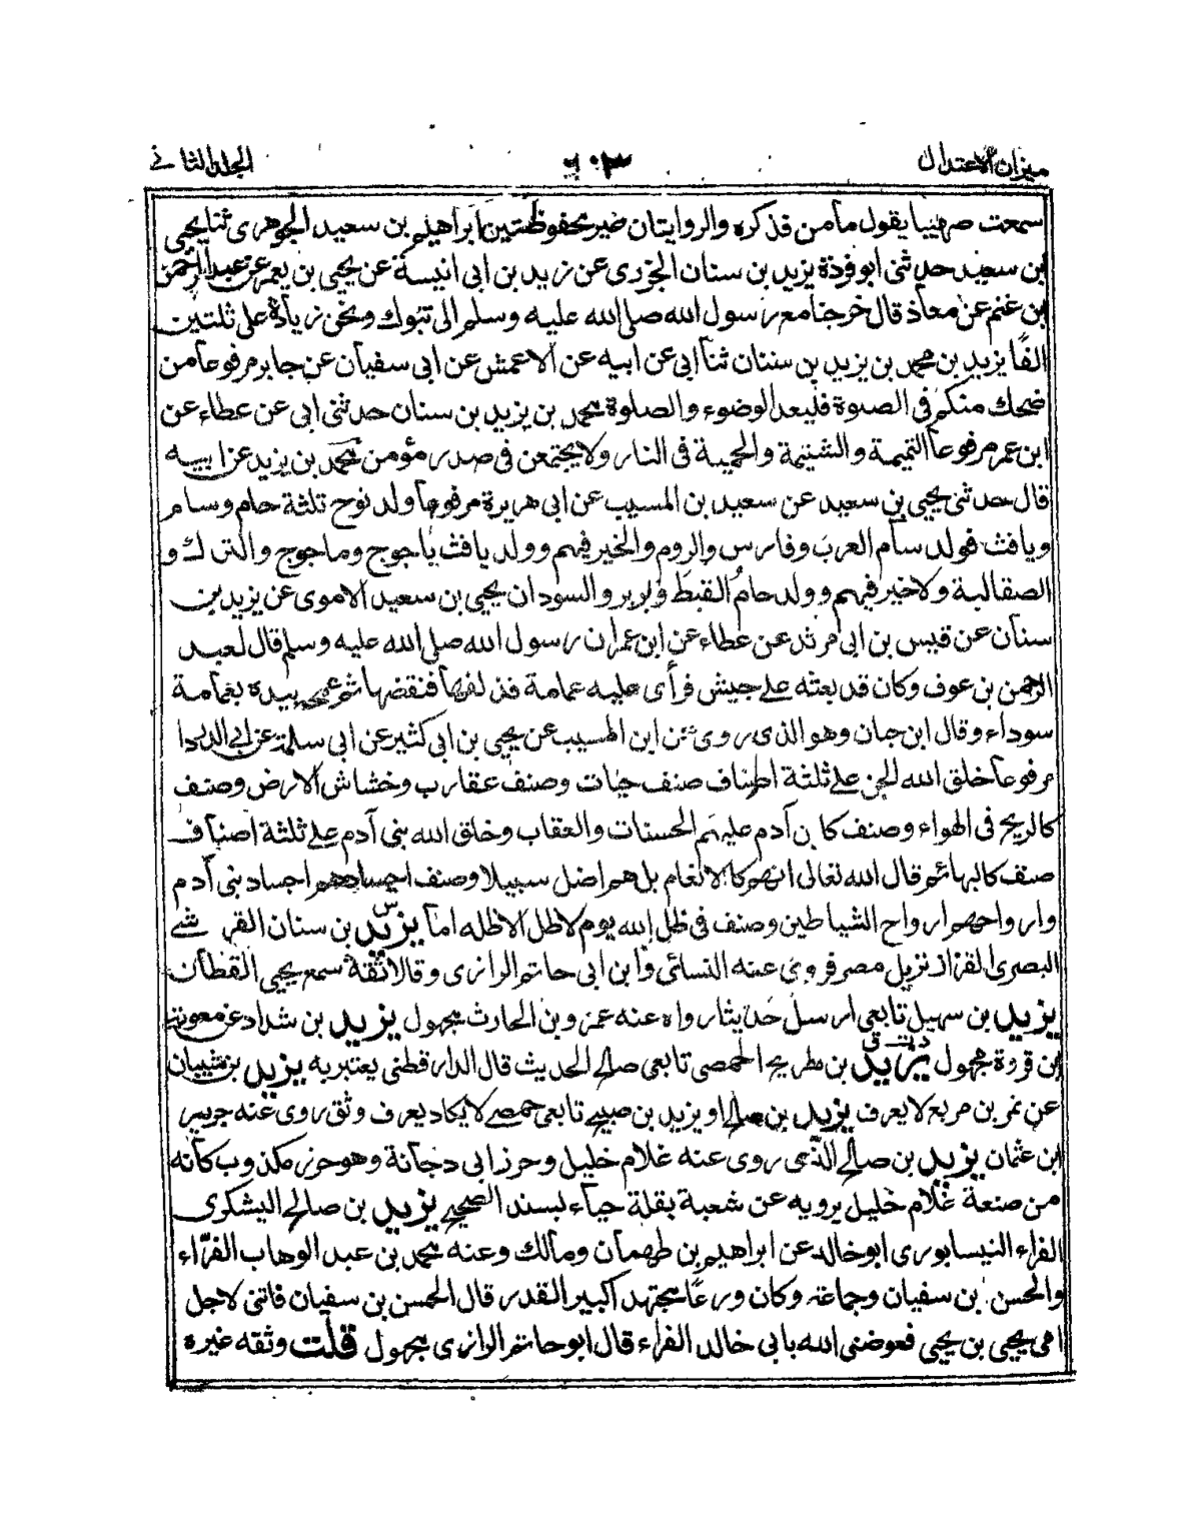 ميزان الاعتدال ٦٠٣ المجلد الثاني
سمعت صهيبا يقول ما من فذكره والروايتان غير محفوظتين ابراهيم بن سعيد الجوهرى ثنا يحيى
بن سعيد حدثنى ابو فروة يزيد بن سنان الجزرى عن زيد بن ابى انيسة عن يحيى بن يعمر عن عبد الرحمن
بن غنم عن معاذ قال خرجنا مع رسول الله صلى الله عليه وسلم الى تبوك ونحن زيادة على ثلثين
الفا يزيد بن محمد بن يزيد بن سنان ثنا ابى عن ابيه عن الاعمش عن ابى سفيان عن جابر مرفوعا من
ضحك منكم فى الصلوة فليعد الوضوء والصلوة محمد بن يزيد بن سنان حدثنى ابى عن عطاء عن
ابن عمر مرفوعا النميمة والشتيمة والحمية فى النار ولا يجتمعن فى صدر مؤمن محمد بن يزيد عن ابيه
قال حدثنى يحيى بن سعيد عن سعيد بن المسيب عن ابى هريرة مرفوعا ولد نوح ثلثة حام وسام
ويافث فولد سام العرب وفارس والروم والخير فيهم وولد يافث ياجوج وماجوج والترك و
الصقالبة ولا خير فيهم وولد حام القبط وبربر والسودان يحيى بن سعيد الاموى عن يزيد بن
سنان عن قيس بن ابى مرثد عن عطاء عن ابن عمر ان رسول الله صلى الله عليه وسلم قال لعبد
الرحمن بن عوف وكان قد بعثه على جيش فرأى عليه عمامة قد لفها فنقضها ثم عممه بيده بعمامة
سوداء وقال ابن حبان وهو الذى روى عن ابن المسيب عن يحيى بن ابى كثير عن ابى سلمة عن ابى الدردا
مرفوعا خلق الله الجن على ثلثة اصناف صنف حيات وصنف عقارب وخشاش الارض وصنف
كالريح فى الهواء وصنف كابن آدم عليهم الحسنات والعقاب وخلق الله بنى آدم على ثلثة اصناف
صنف كالبهائم قال الله تعالى ان هم كالانعام بل هم اضل سبيلا وصنف اجسادهم اجساد بنى آدم
وارواحهم ارواح الشياطين وصنف فى ظل الله يوم لا ظل الا ظله اما يزيد س بن سنان القرشے
البصرى القزاز نزيل مصر فروى عنه النسائى وابن ابى حاتم الرازى وقالا ثقة سمع يحيى القطان
يزيد بن سهيل تابعى ارسل حديثا رواه عنه عمرو بن الحارث مجهول يزيد بن شداد عن معوية
بن قروة مجهول يزيد د ت ق بن شريح الحمصى تابعى صالح الحديث قال الدارقطنى يعتبر به يزيد بن شيبان
عن نمر بن مربع لا يعرف يزيد بن صالح او يزيد بن صبيح تابعى حمصى لا يكاد يعرف وثق روى عنه جرير
بن عثمان يزيد بن صالح الذى روى عنه غلام خليل وحرز ابى دجانة وهو حرز مكذوب كأنه
من صنعة غلام خليل يرويه عن شعبة بقلة حياء بسند الصحيح يزيد بن صالح اليشكرى
الفراء النيسابورى ابو خالد عن ابراهيم بن طهمان ومالك وعنه محمد بن عبد الوهاب الفراء
والحسن بن سفيان وجماعة وكان ورعا مجتهدا كبير القدر قال الحسن بن سفيان فاتنى لاجل
امى يحيى بن يحيى فعوضنى الله بابى خالد الفراء قال ابو حاتم الرازى مجهول قلت وثقه غيره